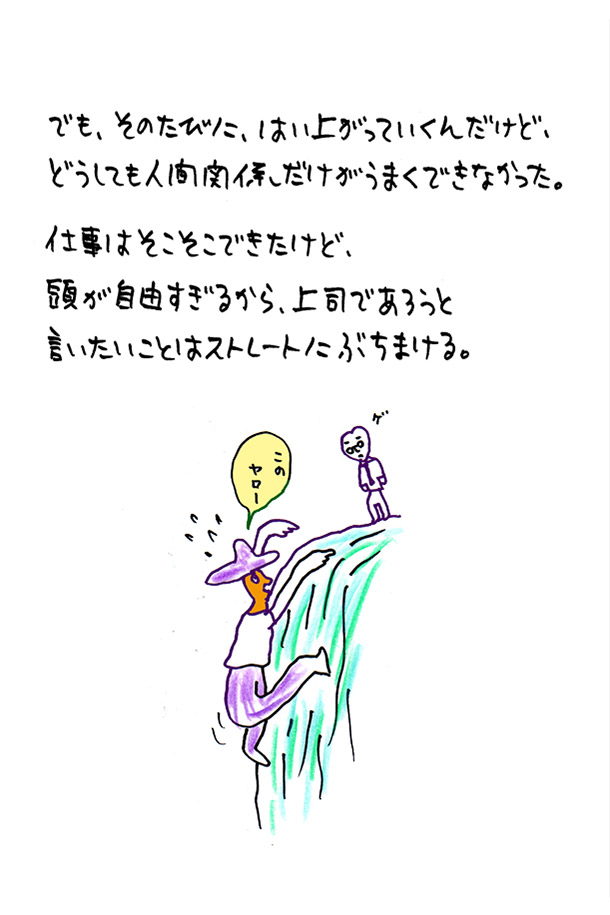 でも、そのたびに、はい上がっていくんだけど、
どうしても人間関係だけがうまくできなかった。
仕事はそこそこできたけど、
頭が自由すぎるから、上司であろうと
言いたいことはストレートにぶちまける。
ゲ
この
ヤロー